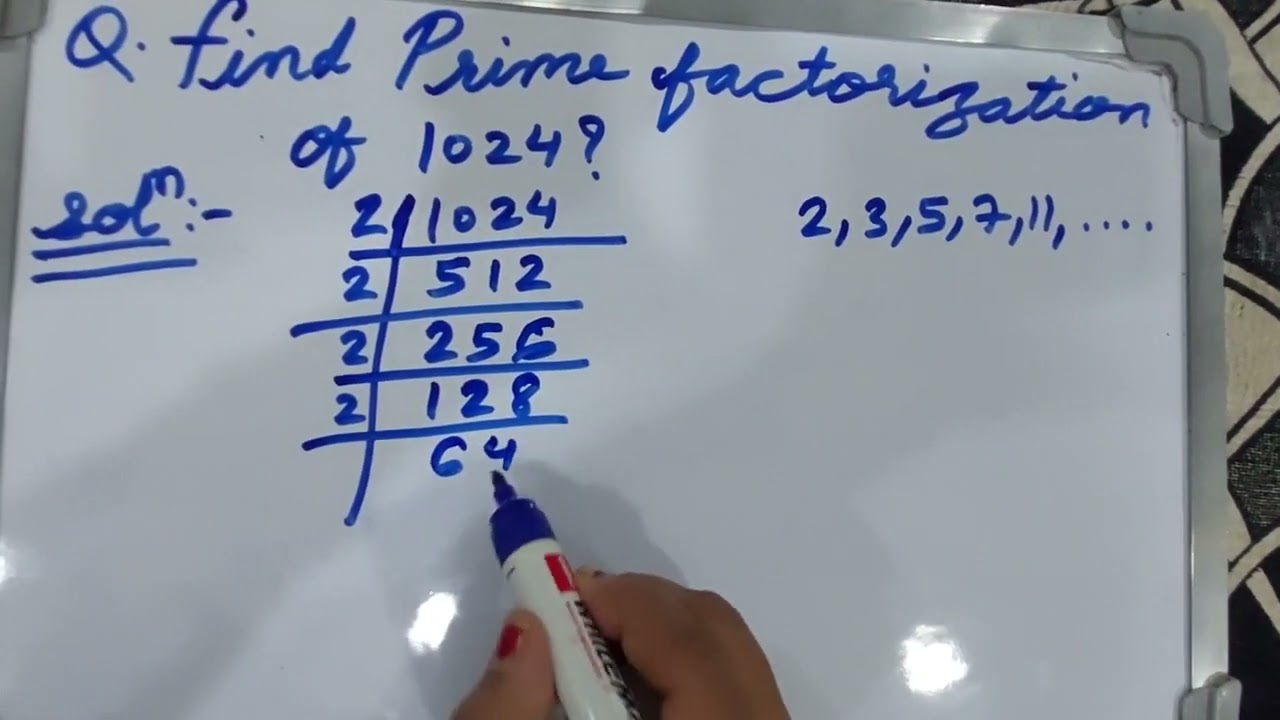 Q. Find Prime factorization
of 1024?
Solⁿ:-
2, 3, 5, 7, 11, ....
2 1024
2 512
2 256
2 128
64